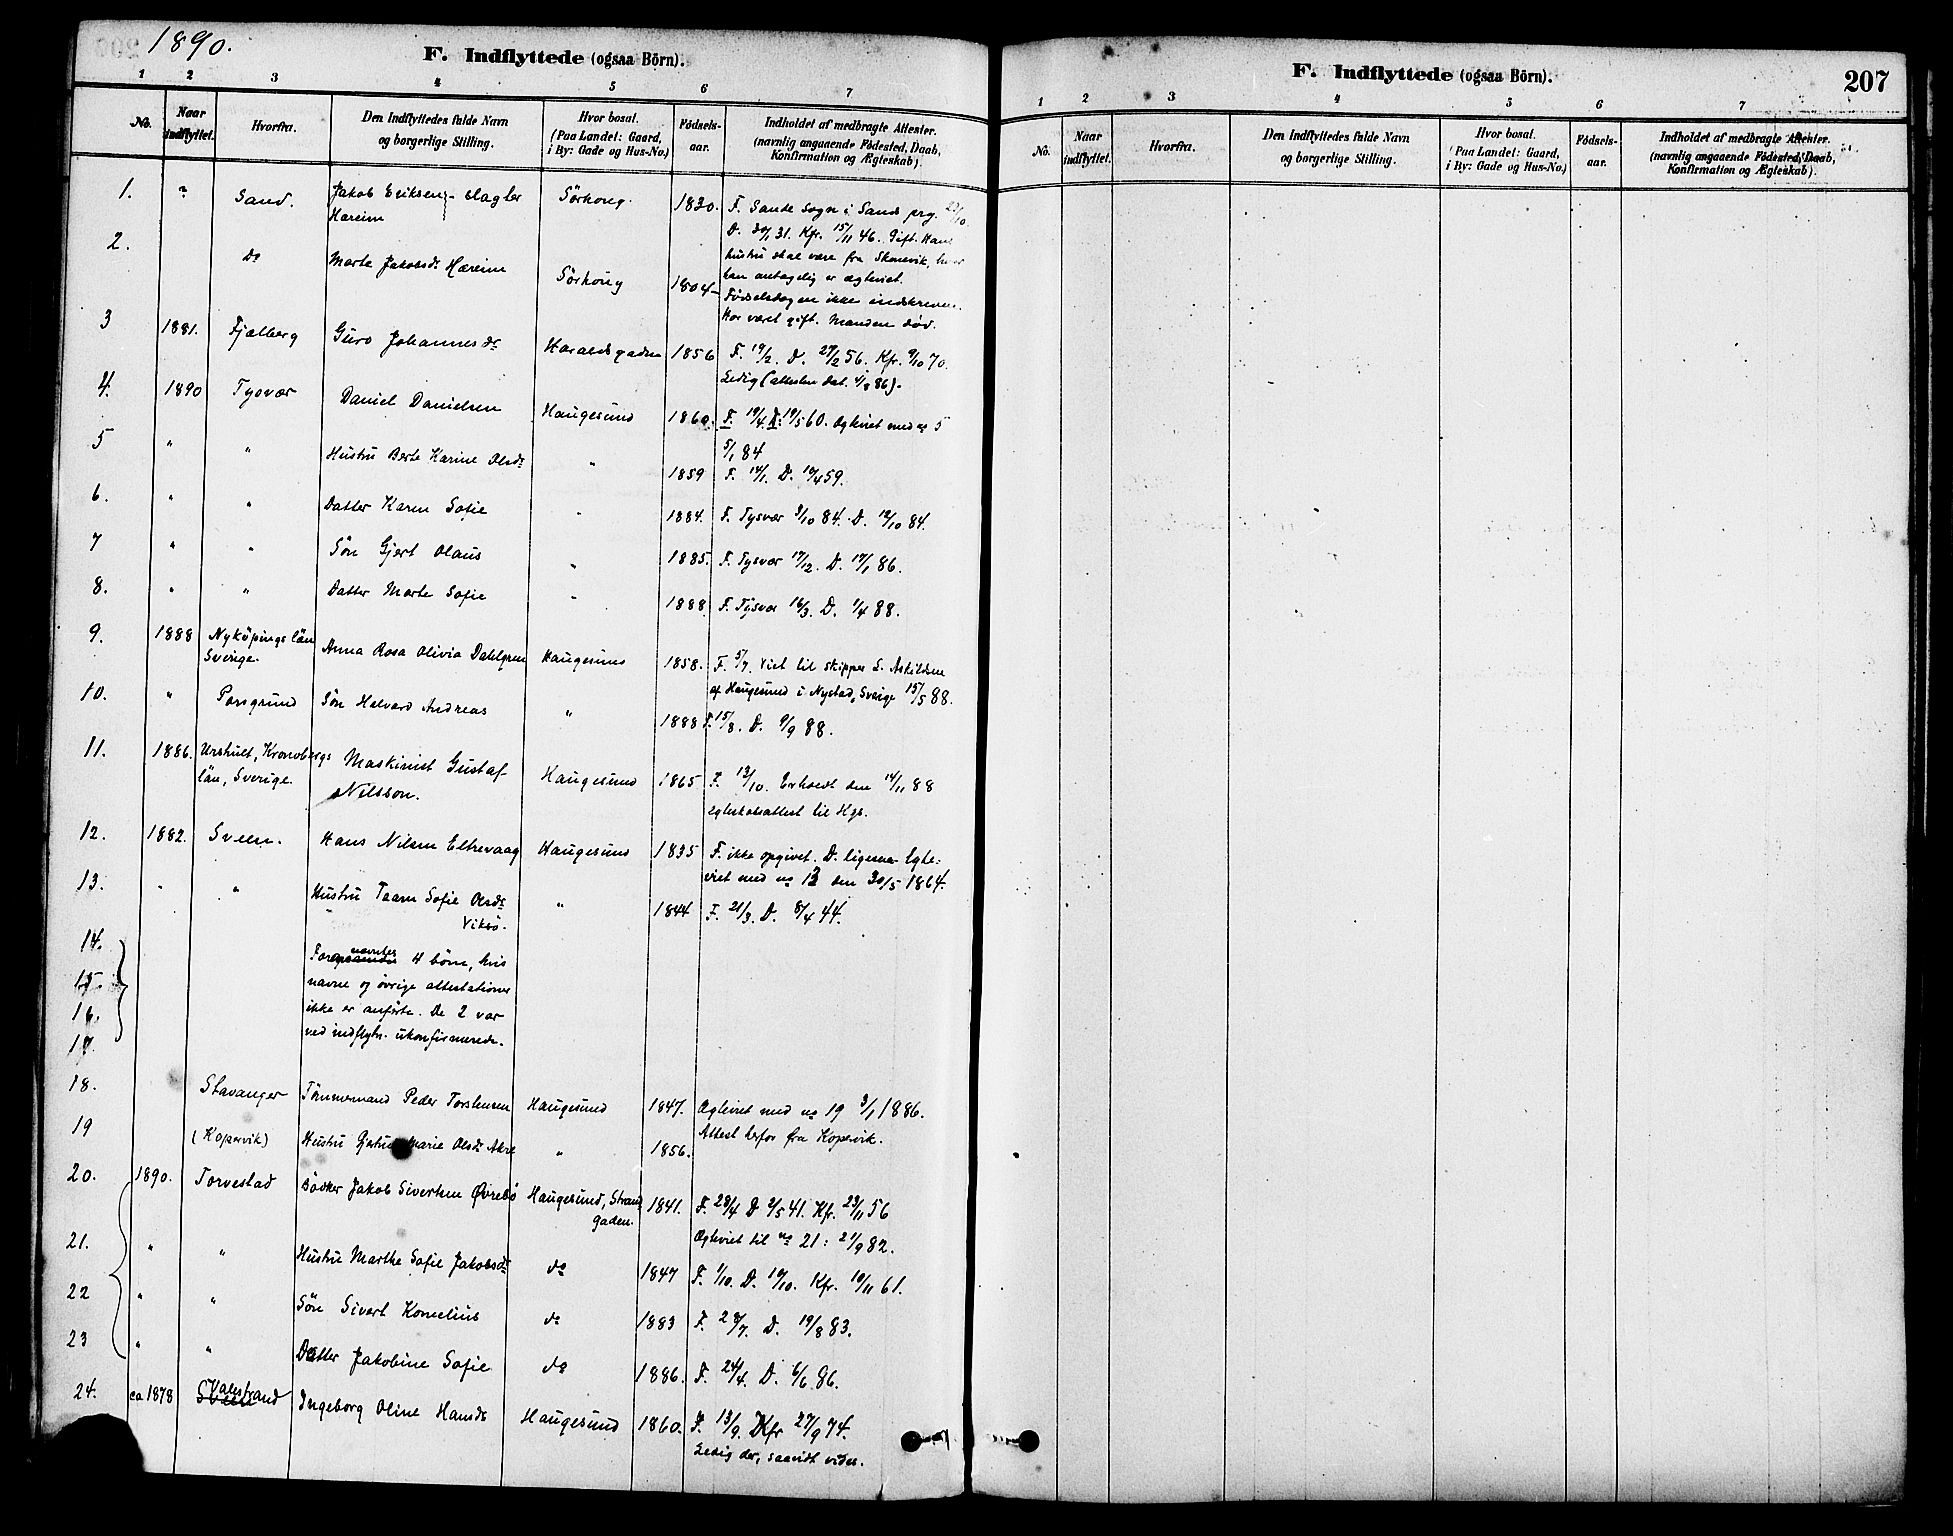 1890.
F. Indflyttede (ogsaa Börn).
1 2 3 4 5 6 7
No.
Naar indflyttet.
Hvorfra.
Den Indflyttedes fulde Navn og borgerlige Stilling.
Hvor bosat. (Paa Landet: Gaard, i By: Gade og Hus-No.)
Fødsels-aar.
Indholdet af medbragte Attester. (navnlig angaaende Fødested, Daab, Konfirmation og Ægteskab).
1. " Sand. Jakob Eriksen - slagter Sörhoug. 1830. F. Sande sogn i Sands prg. 23/10.
Hareim D. 30/1 31. Kfr. 15/11 46. Gift. Hans
2. Do Marte Jakobsdr Hæreim Sörhoug 1804 hustru skal være fra Skonevik, hvor
han antagelig er ægteviet.
Födselsdagen ikke indskreven.
Har været gift. Manden död.
3 1881. Fjælberg Guro Johannesdr Haraldsgaden 1856 F. 19/2. D. 27/2 56. Kfr. 9/10 70.
Ledig (attesten dat. 4/8 86).
4. 1890 Tysvær Daniel Danielsen Haugesund 1860. F. 19/4. D. 19/5 60. Ægteviet med no 5
5/1 84
5 " " Hustru Berte Karine Olsdr " 1859 F. 14/1. D. 10/4 59.
6. " " Datter Karen Sofie " 1884. F. Tysvær 3/10 84. D. 12/10 84.
7 " " Sön Gjert Olaus " 1885. F. Tysvær 17/12. D. 17/1 86.
8. " " Datter Marte Sofie " 1888. F. Tysvær 16/3. D. 1/4 88.
9. 1888 Nyköpings län Sverige. Anna Rosa Olivia Dahlgren Haugesund 1858. F. 5/7. Viet til skipper L. Askildsen
af Haugesund i Nystad, Sverige 15/5 88.
10. " Porsgrund Sön Halvard Andreas " 1888 F. 15/8. D. 9/9 88.
11. 1886. Urshult, Kronobergs län, Sverige. Maskinist Gustaf Nilsson. Haugesund 1865 F. 12/10. Erholdt den 14/11 88
egteskabsattest til Hgs.
12. 1882. Sveen. Hans Nilsen Eltrevaag Haugesund 1835 F. ikke opgivet. D. ligesaa Egte-
viet med no 13 den 30/5 1864.
13. " " Hustru Taarn Sofie Olsdr Viksö. " 1844 F. 21/3. D. 8/4 44.
14.
15.
16.
17.
Forannævntes 4 börn, hvis
navne og övrige attestationer
ikke er anförte. De 2 var
ved indflytn. ukonfirmerede.
18. Stavanger Tömmermand Peder Torstensen Haugesund 1847. Ægteviet med no 19 3/1 1886.
Attest herfor fra Kopervik.
19 (Kopervik) Hustru Marie Olsdr Akre " 1856.
20. 1890. Torvestad Bödker Jakob Sivertsen Øvrebö Haugesund, Strandgaden. 1841. F. 23/4 D 2/5 41. Kfr. 23/11 56
Ægteviet til no 21: 21/9 82.
21. " " Hustru Marthe Sofie Jakobsdr do 1847 F. 1/10. D. 10/10. Kfr. 10/11 61.
22 " " Sön Sivert Kornelius do 1883 F. 28/7. D. 19/8 83.
23 " " Datter Jakobine Sofie do 1886. F. 24/4. D. 6/6 86.
24. ca 1878 Valestrand Ingeborg Oline Hansdr Haugesund 1860. F. 13/9. Kfr 27/9 74.
Ledig der, saavidt vides.
F. Indflyttede (ogsaa Börn).
207
1 2 3 4 5 6 7
No.
Naar indflyttet.
Hvorfra.
Den Indflyttedes fulde Navn og borgerlige Stilling.
Hvor bosat. (Paa Landet: Gaard, i By: Gade og Hus-No.)
Fødsels-aar.
Indholdet af medbragte Attester. (navnlig angaaende Fødested, Daab, Konfirmation og Ægteskab).